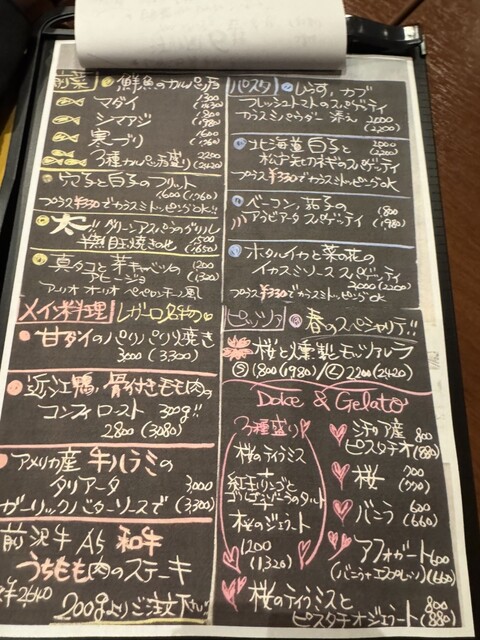 前菜
鮮魚のカルパッチョ
マダイ 1300 (1430)
シマアジ 1800 (1980)
寒ブリ 1600 (1760)
3種カルパッチョ盛り 2200 (2420)
穴子と白子のフリット
1600 (1760)
プラス¥330でカラスミトッピングok!!
太!! グリーンアスパラのグリル
半熟目玉焼きのせ 1500 (1650)
真ダコと芽キャベツの 1200 (1320)
アーリオ オリオ ペペロンチーノ風
メイン料理
甘ダイのパリパリ焼き
3000 (3,300)
近江鴨 骨付きもも肉の
コンフィロースト 300g!!
2800 (3080)
アメリカ産 牛ハラミの
タリアータ 3,000
ガーリックバターソースで (3,300)
前沢牛 A5 和牛
うちもも肉のステーキ
200gよりご注文下さい
パスタ
しらす、カブ
フレッシュトマトのスパゲティ
カラスミパウダー 添え 2000 (2200)
北海道白子と 2000 (2200)
松ナ天とカキのスパゲティ
プラス¥330でカラスミトッピングok
ベーコン、茄子の 1800
アラビアータ スパゲッティ (1980)
ホタルイカと菜の花の
イカスミソース スパゲッティ
2000 (2200)
プラス¥330でカラスミトッピングok
ピッツァ
春のスペシャリテ!!
桜と燻製モッツァレラ
Ⓢ 1800 (1980) / Ⓛ 2200 (2420)
Dolce & Gelato
3種盛り
桜のティラミス
桜のジェラート
1200
(1320)
ピスタチオ 800 (880)
桜 700 (770)
バニラ 600 (660)
アフォガート 600
(バニラ+エスプレッソ) (660)
桜のティラミスと 800
ピスタチオジェラート (880)